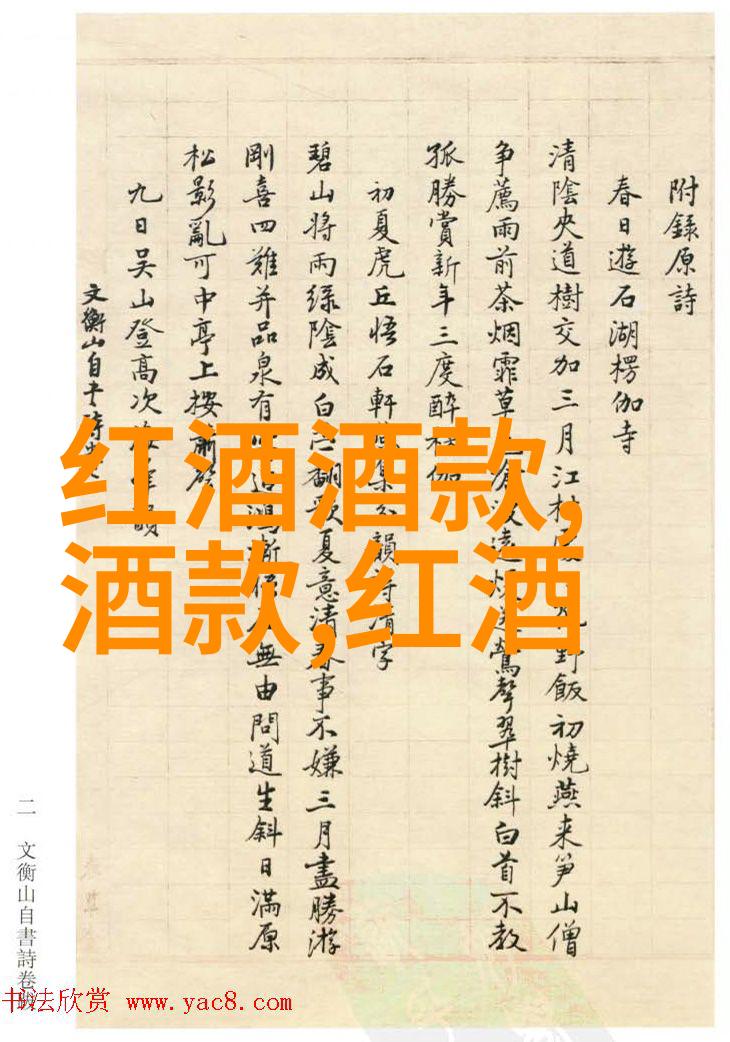 附錄原詩
春日遊石湖楞伽寺
清陰夾道樹交加三月江村野飯初燒燕来笋山僧
争薦雨前茶烟霏草滄波遠鶯聲翠樹斜白首不教
孤勝賞新年三度醉
初夏虎丘悟石軒集韻清字
碧山將雨綠陰成白翻歌夏意清春事不嫌三月盡勝游
剛喜四難并品泉有鴻漸無由問道生斜日滿原
松影亂可中亭上按簫
九日吳山登高次韻
文衡山自
红酒酒款,
酒款,红酒
二 文衡山自書詩卷跋
书法欣赏 www.yac8.com